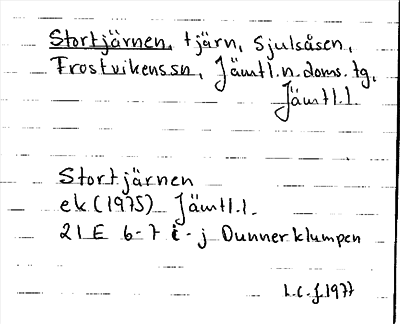 Stortjärnen, tjärn, Sjulsåsen,
Frostvikens sn, Jämtl.n.doms.tg,
Jämtl.l.
Stortjärnen
ek (1975) Jämtl.l.
21 E 6-7 i-j Dunnerklumpen
L.C.J. 1977